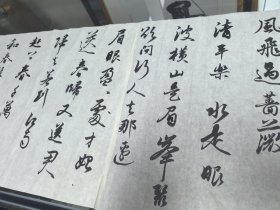 風飛過薔薇
清平樂 水是眼
波橫山是眉峯聚
欲問行人去那邊
眉眼盈々處才始
送春歸又送君
歸去若到江南
赶上春千萬
和春